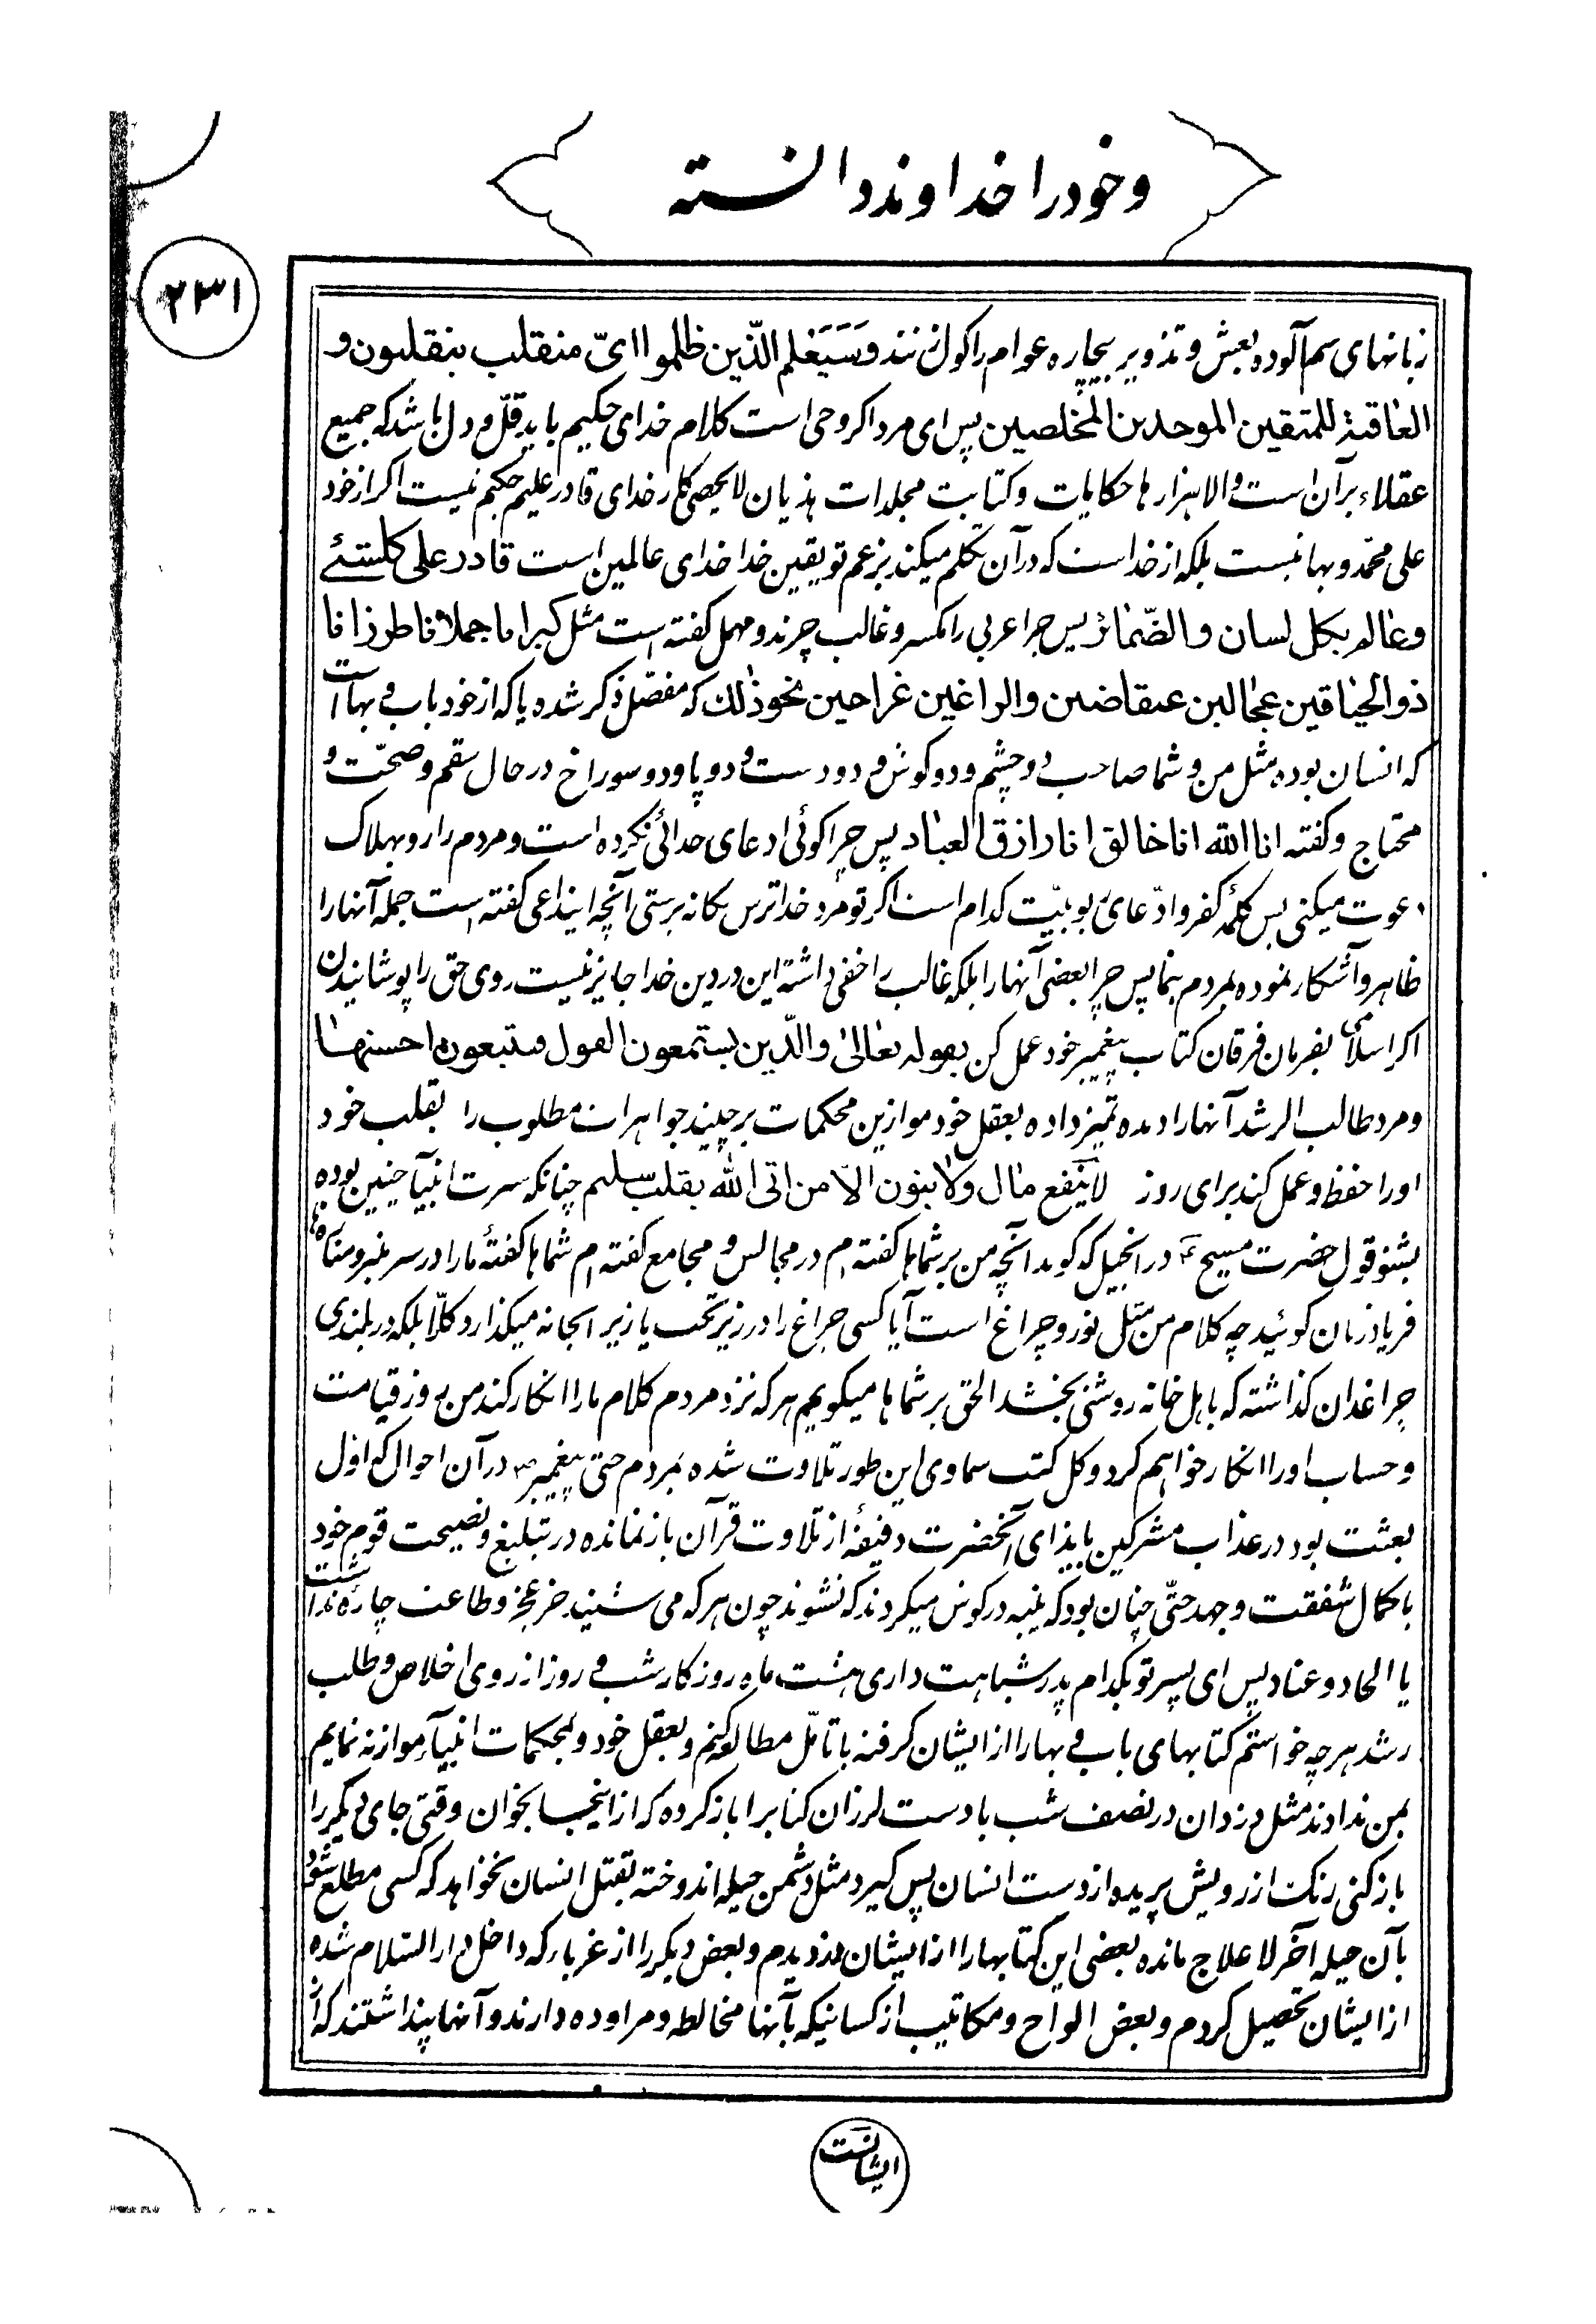 وخود را خداوند دانسته
۲۳۱
زبانهای سم آلوده بعش و تذویر بیچاره عوام را کول نزنند وَسَیَعْلم الّذین ظلموا ایّ منقلب ینقلبون و
العاقبة للمتقین الموحدین المخلصین پس ای مرد اکر وحی است کلام خدای حکیم باید قلّ و دل باشد که جمیع
عقلاء بر آن است و الا هزارها حکایات و کتابت مجلدات هذیان لایحصی کار خدای قادر علیم حکیم نیست اکر از خود
علی محمّد و بها نیست بلکه از خداست که در آن تکلم میکند بزعم تو یقین خدا خدای عالمین است قادر علی کلشئ
و عالم بکل لسان و الضّمائر پس چرا عربی را مکسر و غالب چرند و مهمل کفته است مثل کبرا ما جملا فاطرزافا
ذوالحیاقین عجالین عقاضین والراغین غراحین نحو ذلک که مفصّل ذکر شده یا که از خود باب و بها است
که انسان بوده مثل من و شما صاحب دو چشم و دو کوش و دو دست و دو پا و دو سوراخ در حال سقم و صحّت و
محتاج و کفته انا الله انا خالق انا رازق العباد پس چرا کوئی ادعای خدائی نکرده است و مردم را رو بهلاک
دعوت میکنی پس کلمهٔ کفر و ادّعای ربوبیّت کدام است اکر تو مرد خداترس یکانه پرستی آنچه ایندا عی کفته است جمله آنها را
ظاهر و آشکار نموده بمردم بنما پس چرا بعضی آنها را بلکه غالب را خفی داشته این در دین خدا جایز نیست روی حق را پوشانیدن
اکر اسلامی بفرمان فرقان کتاب پیغمبر خود عمل کن بقوله تعالی والّذین یستمعون القول فیتبعون احسنها
و مرد طالب الرشد آنها را دیده تمیز داده بعقل خود موازین محکمات برچیند جواهرات مطلوب را بقلب خود
او را حفظ و عمل کند برای روز لا ینفع مال ولا بنون الّا من اتی الله بقلب سلیم چنانکه سیرت انبیآ چنین بوده
بشنو قول حضرت مسیح ع در انجیل که کوید آنچه من بر شماها کفته ام در مجالس و مجامع کفته ام شماها کفتهٔ ما را در سر منبر و مناره ها
فریاد زنان کوئید چه کلام من مثل نور و چراغ است آیا کسی چراغ را در زیر تخت یا زیر اجانه میکذارد کلّا بلکه در بلندی
چراغدان کذاشته که باهل خانه روشنی بخشد الحق بر شماها میکویم هر که نزد مردم کلام ما را انکار کند من بروز قیامت
و حساب او را انکار خواهم کرد و کل کتب سماوی این طور تلاوت شده بمردم حتی پیغمبر ص در آن احوال که اول
بعثت بود در عذاب مشرکین بایذای آنحضرت دقیقهٔ از تلاوت قرآن باز نمانده در تبلیغ و نصیحت قوم خود
با کمال شفقت و جهد حتّی چنان بود که پنبه در کوش میکردند که نشنوند چون هر که می شنید جز عجز و طاعت چاره نداشت
یا الحاد و عناد پس ای پسر تو بکدام پدر شباهت داری هشت ماه روزکار شب و روز از روی اخلاص و طلب
رشد هر چه خواستم کتابهای باب و بها را از ایشان کرفته با تامّل مطالعه کنم و بعقل خود و بمحکمات انبیآء موازنه نمایم
بمن ندادند مثل دزدان در نصف شب با دست لرزان کتابرا باز کرده که از اینجا بخوان وقتی جای دیکر را
باز کنی رنک از رویش پریده از دست انسان پس کیرد مثل دشمن حیله اندوخته بقتل انسان نخواهد که کسی مطلع شود
بآن حیله آخر لاعلاج مانده بعضی این کتابها را از ایشان دزدیدم و بعض دیکر را از غربا که داخل دار السلام شده
از ایشان تحصیل کردم و بعض الواح و مکاتیب از کسانیکه بآنها مخالطه و مراوده دارند و آنها پنداشتند که از
ایشانست